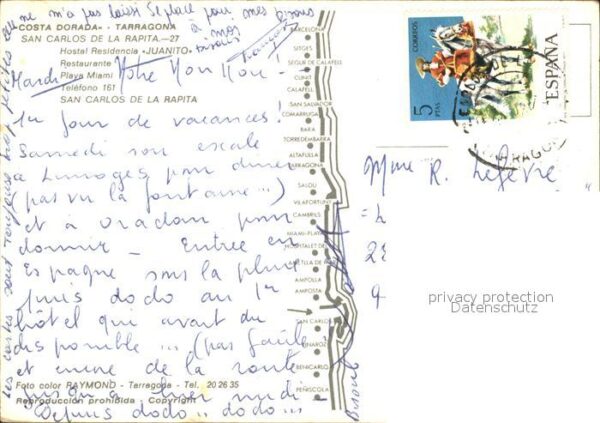 ne m'a pas laissé de place pour mes bisous
à moi
bisous
François
COSTA DORADA - TARRAGONA
SAN CARLOS DE LA RAPITA.—27
Hostal Residencia «JUANITO»
Restaurante
Playa Miami
Teléfono 161
SAN CARLOS DE LA RAPITA
Mardi
Notre Mou Mou !
1er jour de vacances !
Samedi soir escale
à Limoges pour diner
(pas vu la fontaine...)
et à Oradour pour
dormir - Entrée en
Espagne sous la pluie
puis dodo au 1er
hôtel qui avait du
disponible ... (pas facile)
et encore de la route
jusqu'à hier midi -
Depuis dodo.. dodo...
Les cartes sont toujours trop petites
BARCELONA
SITGES
SEGUR DE CALAFELL
CUNIT
CALAFELL
SAN SALVADOR
COMARRUGA
BARA
TORREDEMBARRA
ALTAFULLA
TARRAGONA
SALOU
VILAFORTUNY
CAMBRILS
MIAMI-PLAYA
HOSPITALET DEL
AMETLLA DE MAR
AMPOLLA
AMPOSTA
SAN CARLOS
VINAROZ
BENICARLO
PEÑISCOLA
CORREOS
5
PTAS
ESPAÑA
Mme R. Lefevre
privacy protection
Datenschutz
Foto color RAYMOND - Tarragona - Tel. 20 26 35
Reproducción prohibida - Copyright